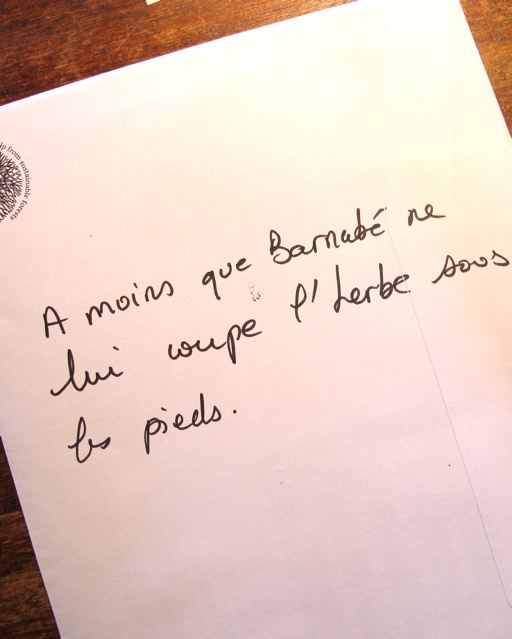 p from sustainable forests
A moins que Barnabé ne
lui coupe l'herbe sous
les pieds.